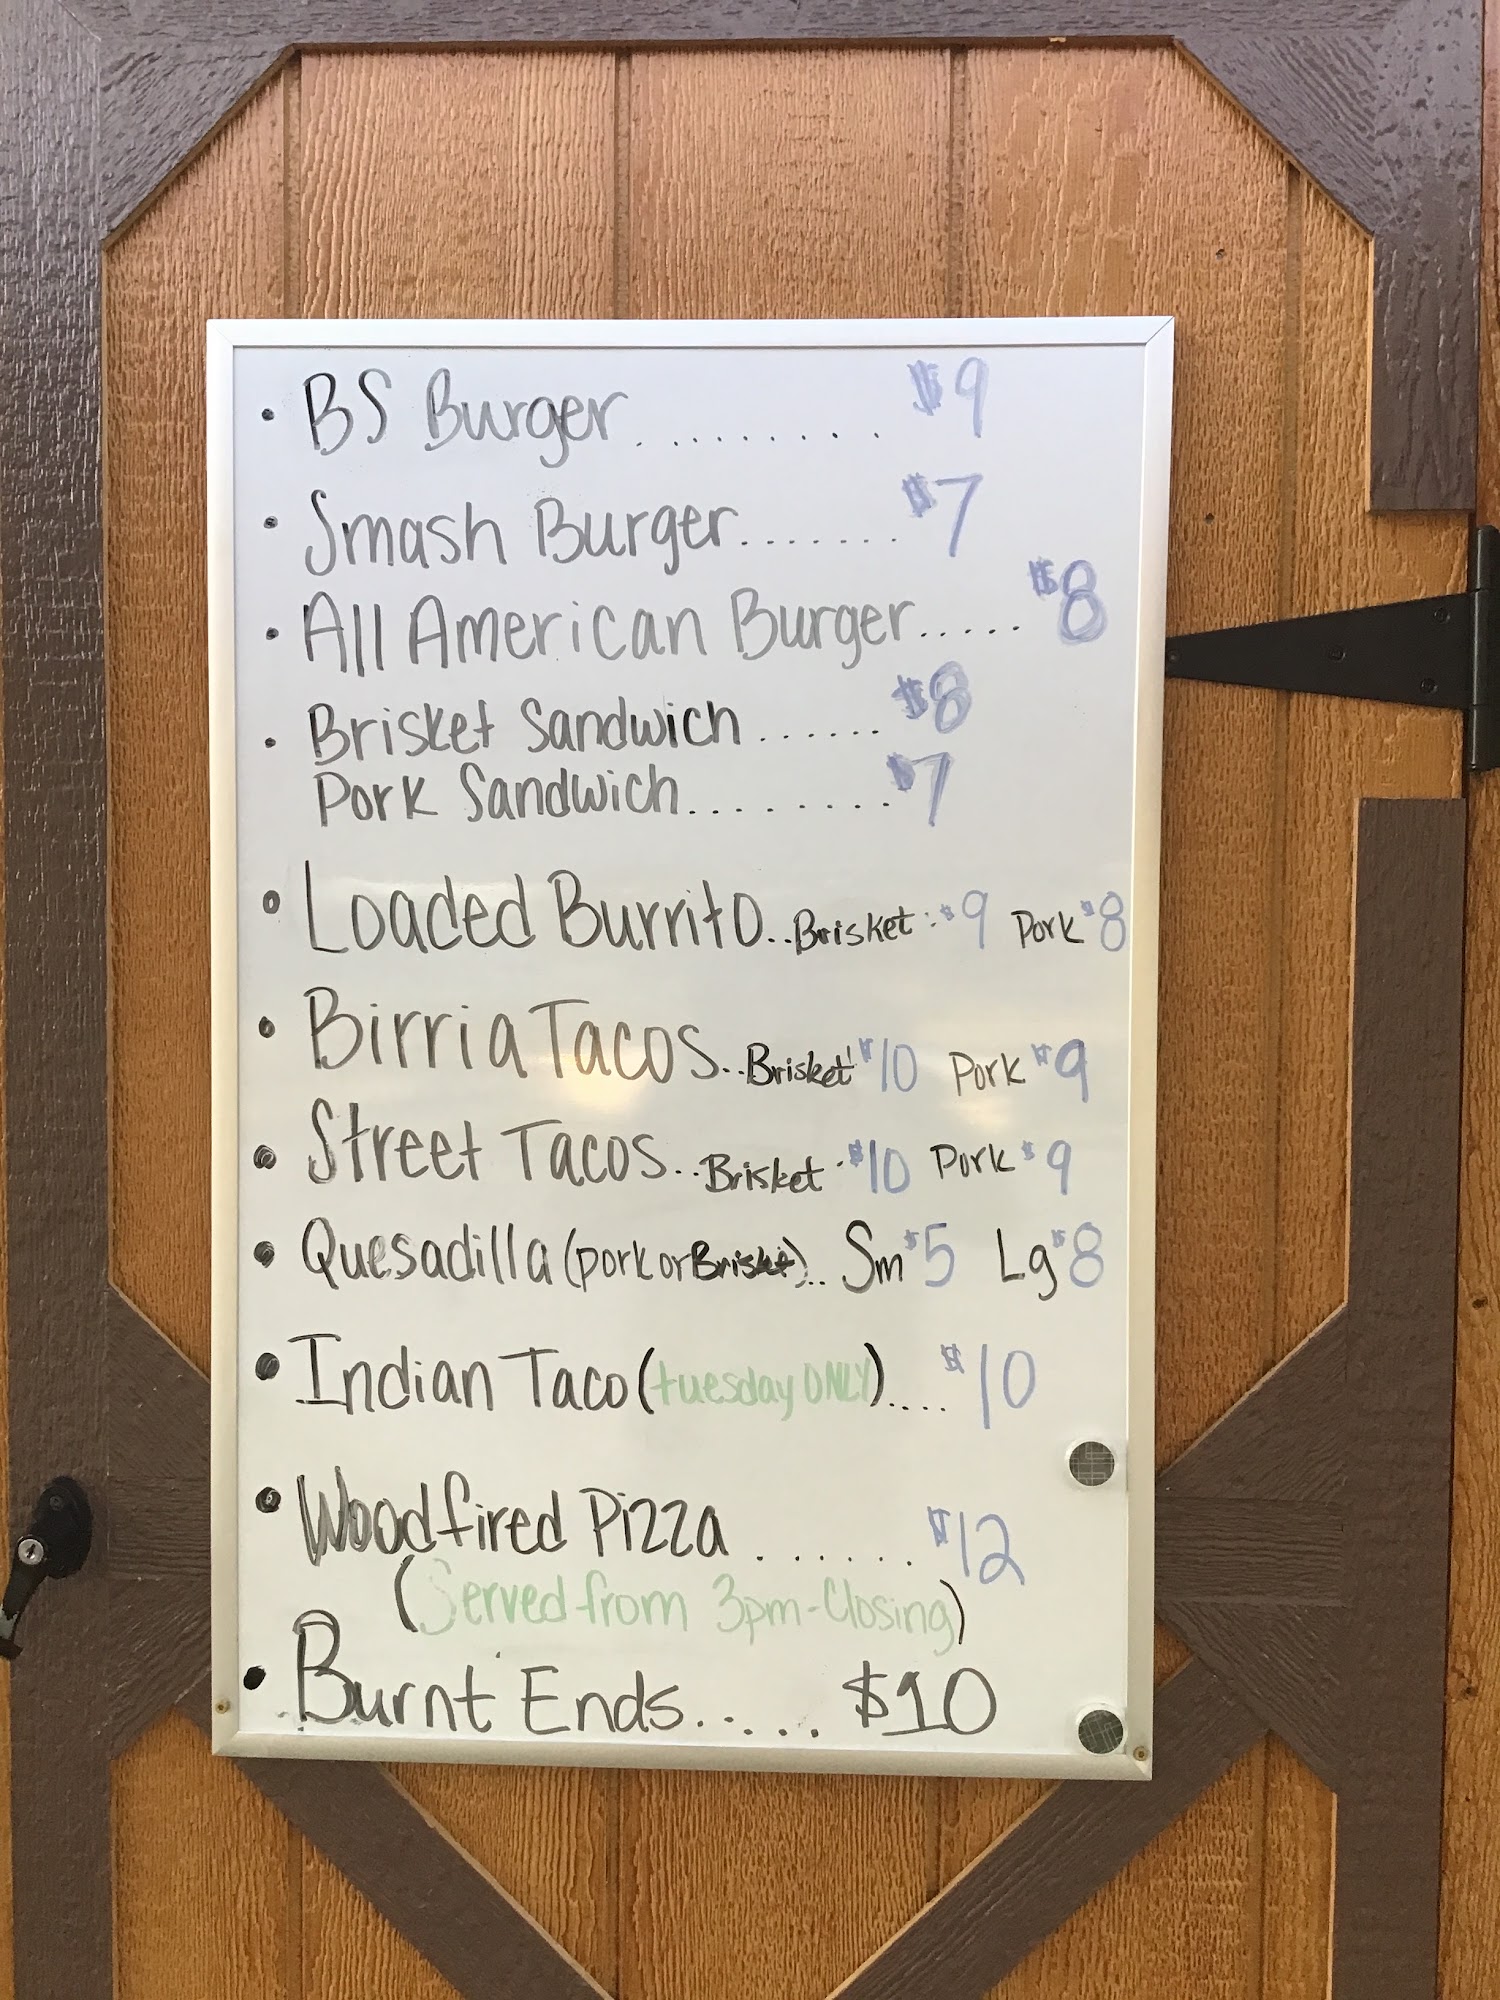 • BS Burger ......... $9
• Smash Burger ....... $7
• All American Burger ..... $8
• Brisket Sandwich ...... $8
Pork Sandwich ........ $7
• Loaded Burrito .. Brisket: $9 Pork $8
• Birria Tacos .. Brisket $10 Pork $9
• Street Tacos .. Brisket $10 Pork $9
• Quesadilla (pork or Brisket) .. Sm $5 Lg $8
• Indian Taco (tuesday ONLY) .... $10
• Woodfired Pizza ....... $12
(Served from 3pm-Closing)
• Burnt Ends ..... $10